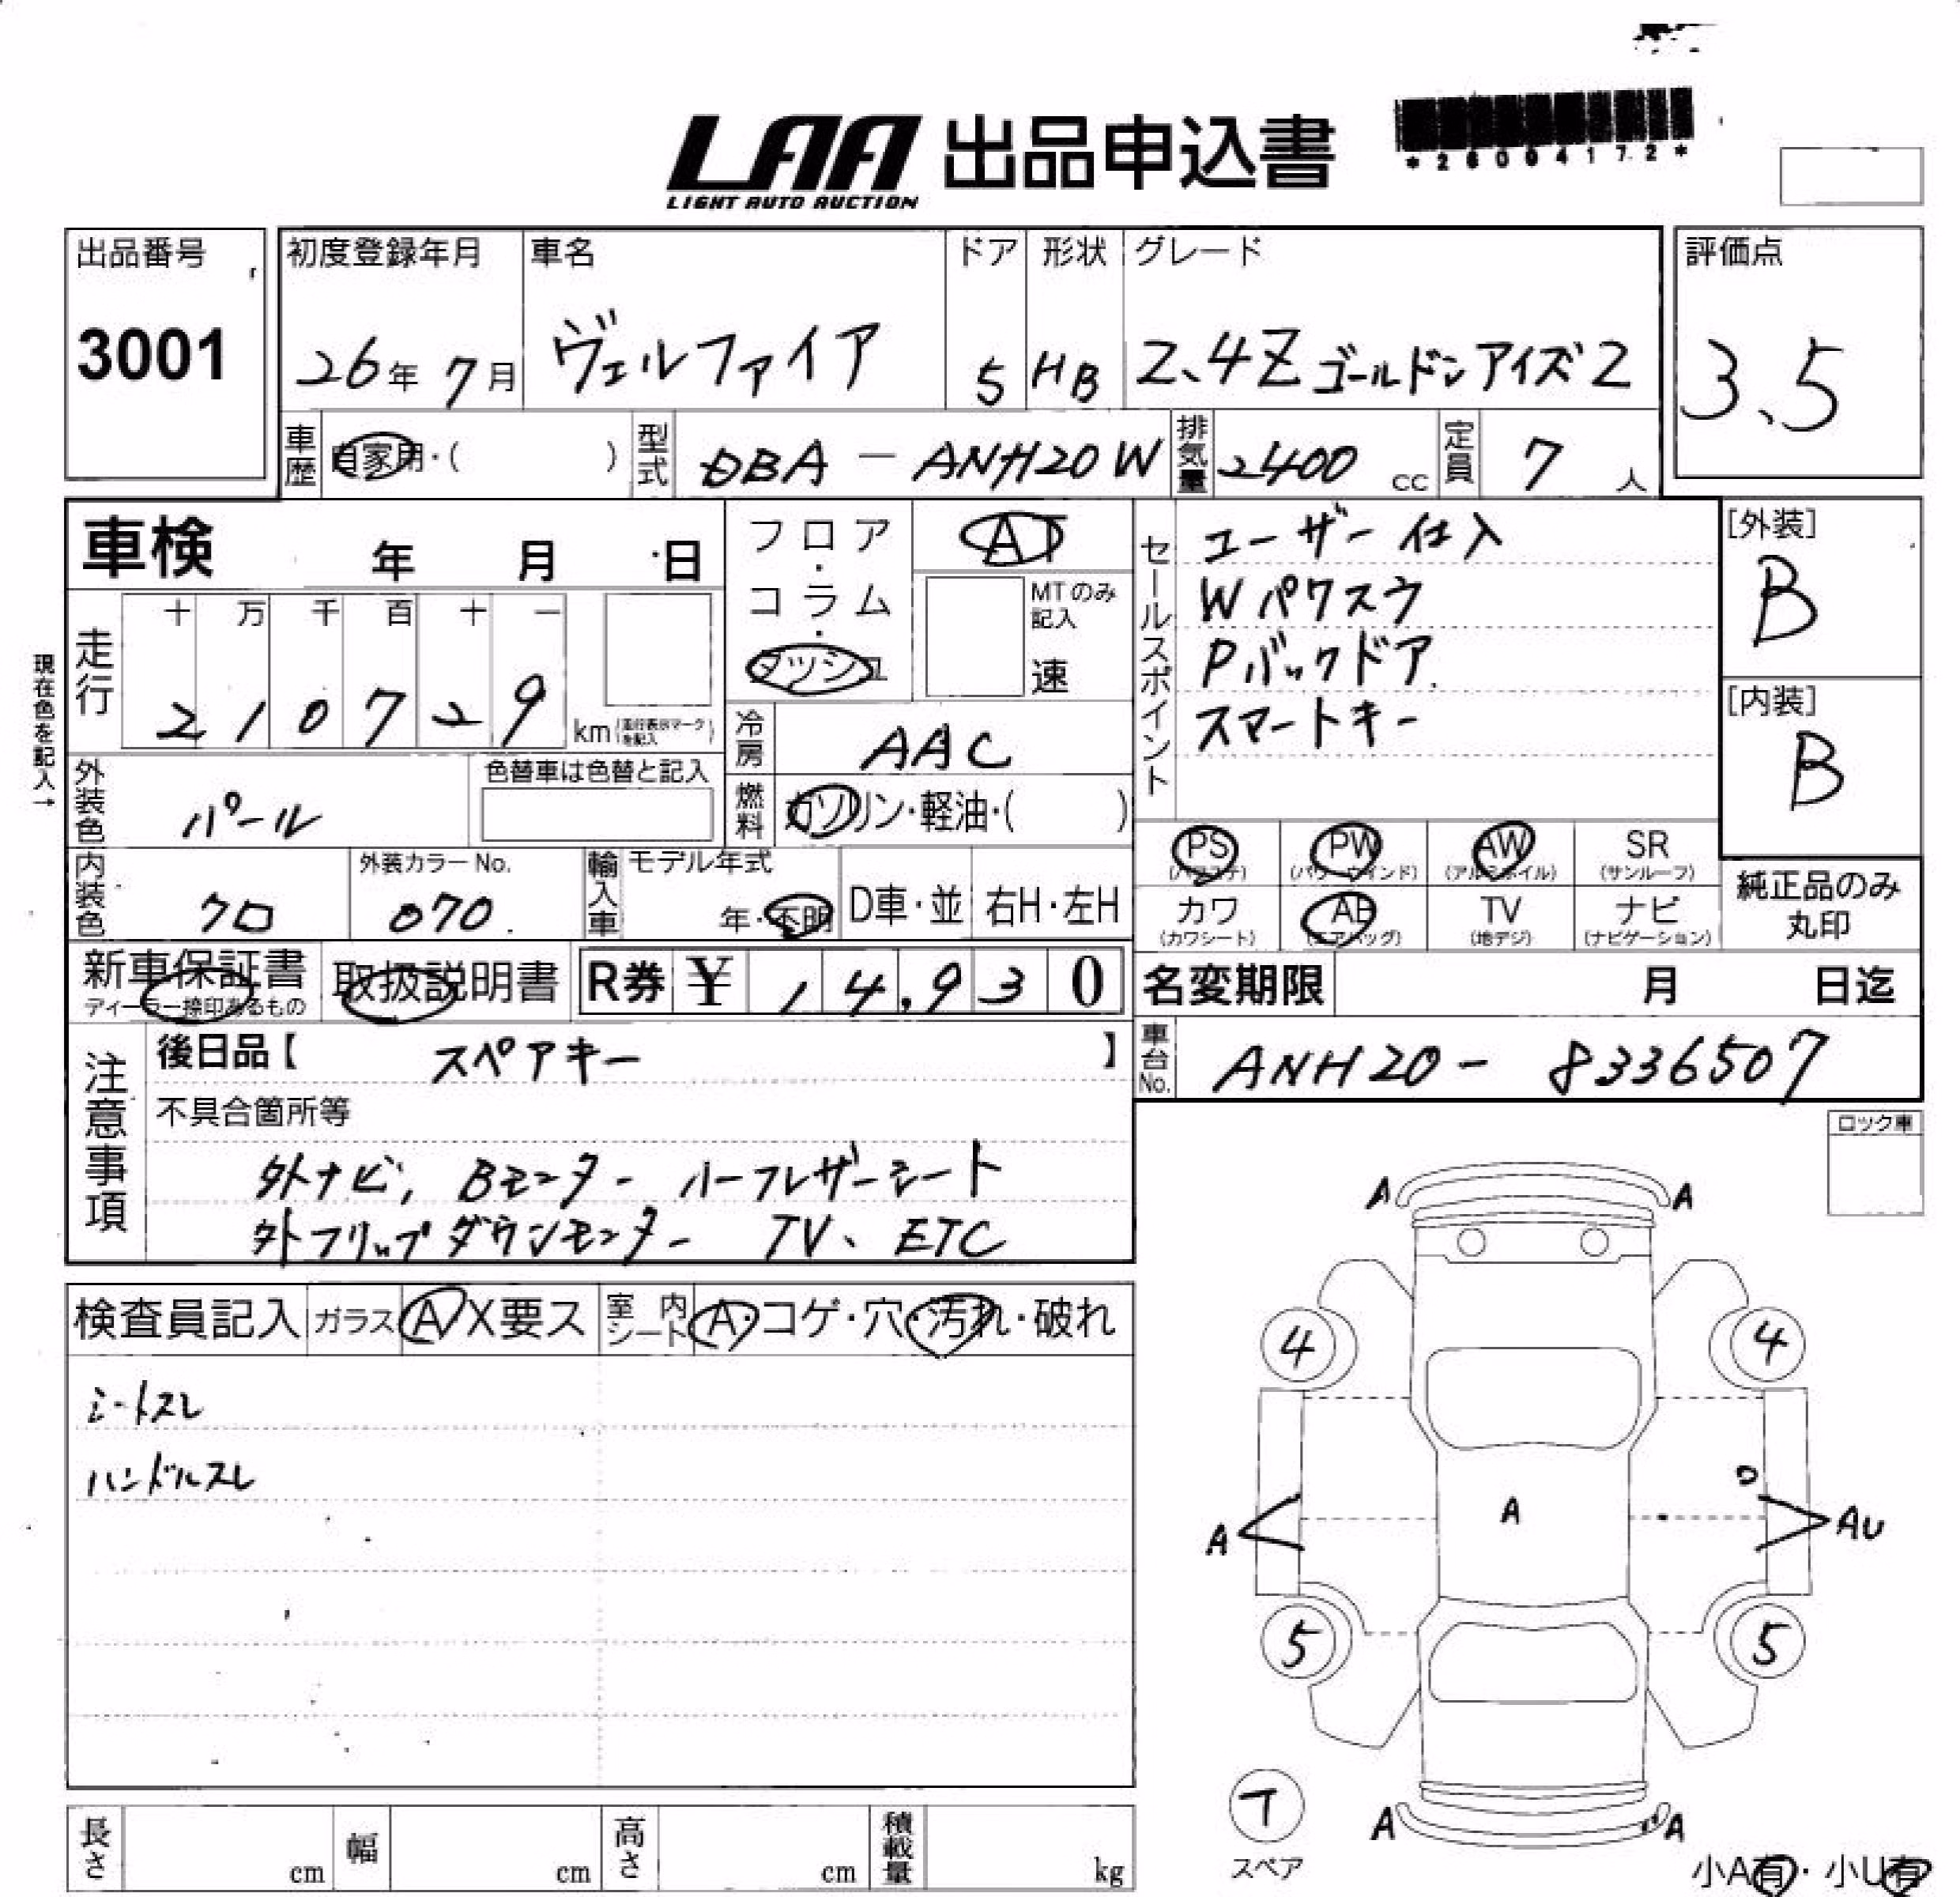 LAA 出品申込書
LIGHT AUTO AUCTION
*26094172*
出品番号 初度登録年月 車名 ドア 形状 グレード 評価点
3001 26年 7月 ヴェルファイア 5 HB 2.4Z ゴールドンアイズ2 3.5
車歴 自家用・( ) 型式 DBA - ANH20W 排気量 2400 cc 定員 7 人
車検 年 月 日
フロア・コラム・ダッシュ
AT
MTのみ記入
速
現在色を記入→
走行 十 万 千 百 十 一
2 1 0 7 2 9 km (走行表示マークを記入)
冷房 AAC
外装色 パール 色替車は色替と記入
燃料 ガソリン・軽油・( )
内装色 クロ 外装カラーNo. 070. 輸入車 モデル年式 年・不明 D車・並 右H・左H
セールスポイント
ユーザー仕入
Wパワスラ
Pバックドア
スマートキー
[外装]
B
[内装]
B
PS PW AW SR
(パワステ) (パワーウインド) (アルミホイル) (サンルーフ)
カワ AB TV ナビ
(カワシート) (エアバッグ) (地デジ) (ナビゲーション)
純正品のみ
丸印
新車保証書 取扱説明書 R券 ¥ 14,930
ディーラー捺印あるもの
名変期限 月 日迄
車台No. ANH20 - 8336507
注意事項
後日品【 スペアキー 】
不具合箇所等
外ナビ, Bモニター ハーフレザーシート
外フリップダウンモニター TV、ETC
ロック車
検査員記入 ガラス A X要ス 室内シート A・コゲ・穴・汚れ・破れ
シートスレ
ハンドルスレ
A A
4 4
A A AU
5 5
T
スペア
A A
小A有・小U有
長さ cm 幅 cm 高さ cm 積載量 kg